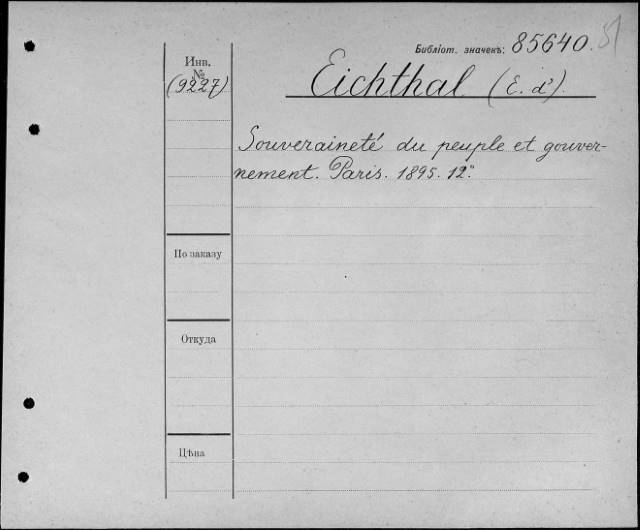 Библіот. значекъ: 85640. 51
Инв.
№
(9227)
Eichthal (E. d').
Souveraineté du peuple et gouver-
nement. Paris. 1895. 12°.
По заказу
Откуда
Цѣна